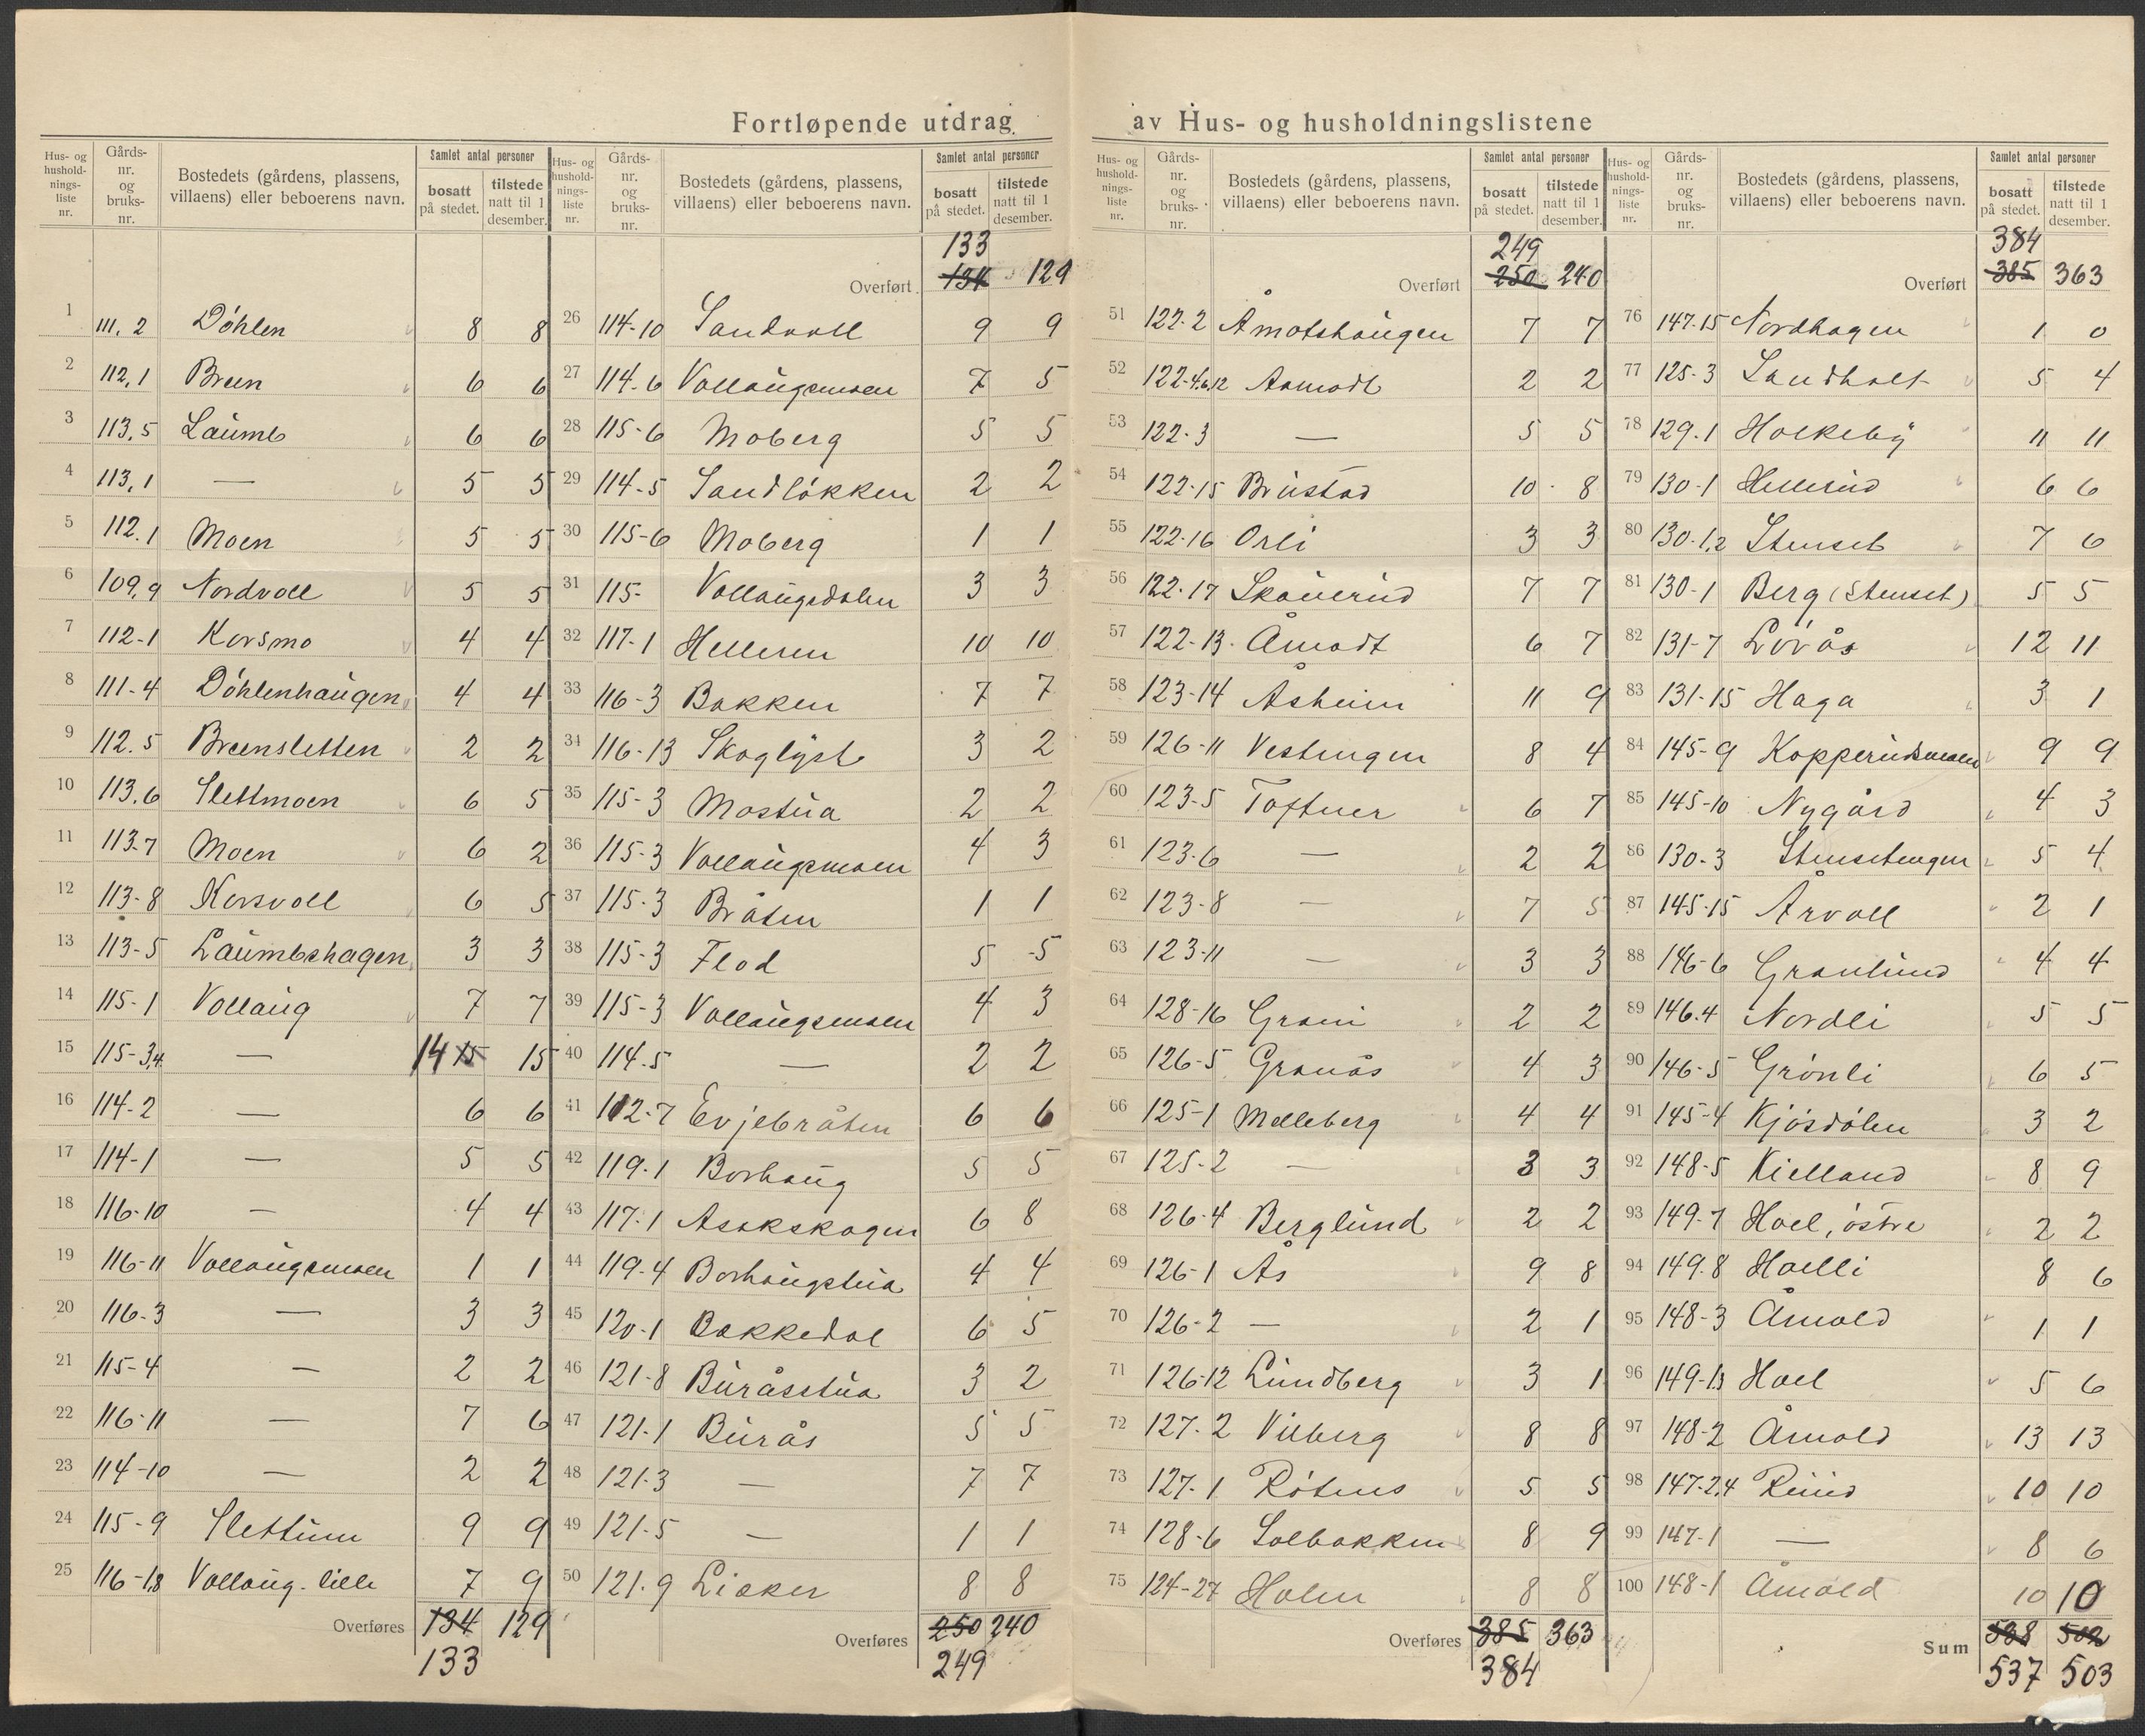 Fortløpende utdrag av Hus- og husholdningslistene
Hus- og husholdnings-liste nr. | Gårds-nr. og bruks-nr. | Bostedets (gårdens, plassens, villaens) eller beboerens navn. | Samlet antal personer bosatt på stedet. | tilstede natt til 1 desember.
1 111. 2 Döhlen 8 8
2 112,1 Breen 6 6
3 113,5 Laumb 6 6
4 113,1 — 5 5
5 112.1 Moen 5 5
6 109,9 Nordvoll 5 5
7 112-1 Korsmo 4 4
8 111-4 Döhlenhaugen 4 4
9 112.5 Breensletten 2 2
10 113.6 Slettmoen 6 5
11 113-7 Moen 6 2
12 113-8 Korsvoll 6 5
13 113-5 Laumbshagen 3 3
14 115-1 Vollaug 7 7
15 115-3,4 — 14 15 15
16 114-2 — 6 6
17 114-1 — 5 5
18 116-10 — 4 4
19 116-11 Vollaugsmoen 1 1
20 116-3 — 3 3
21 115-4 — 2 2
22 116-11 — 7 6
23 114-10 — 2 2
24 115-9 Slettum 9 9
25 116-1,8 Vollaug. lille 7 9
Overføres 134 129
133
Hus- og husholdnings-liste nr. | Gårds-nr. og bruks-nr. | Bostedets (gårdens, plassens, villaens) eller beboerens navn. | Samlet antal personer bosatt på stedet. | tilstede natt til 1 desember.
133
Overført 134 129
26 114-10 Sandvoll 9 9
27 114-6 Vollaugsmoen 7 5
28 115-6 Moberg 5 5
29 114-5 Sandlökken 2 2
30 115-6 Moberg 1 1
31 115- Vollaugsdalen 3 3
32 117-1 Helleren 10 10
33 116-3 Bakken 7 7
34 116-13 Skoglyst 3 2
35 115-3 Mostua 2 2
36 115-3 Vollaugsmoen 4 3
37 115-3 Bråten 1 1
38 115-3 Flod 5 5
39 115-3 Vollaugsmoen 4 3
40 114.5 — 2 2
41 112-7 Evjebråten 6 6
42 119.1 Borhaug 5 5
43 117-1 Asakskogen 6 8
44 119-4 Borhaugstua 4 4
45 120-1 Bakkedal 6 5
46 121-8 Buråsstua 3 2
47 121-1 Burås 5 5
48 121-3 — 7 7
49 121-5 — 1 1
50 121-9 Liaker 8 8
Overføres 250 240
249
Hus- og husholdnings-liste nr. | Gårds-nr. og bruks-nr. | Bostedets (gårdens, plassens, villaens) eller beboerens navn. | Samlet antal personer bosatt på stedet. | tilstede natt til 1 desember.
249
Overført 250 240
51 122-2 Åmotshaugen 7 7
52 122-4,6,12 Aamodt 2 2
53 122-3 — 5 5
54 122-15 Brustad 10 8
55 122-16 Orli 3 3
56 122-17 Skauerud 7 7
57 122-13 Åmodt 6 7
58 123-14 Åsheim 11 9
59 126-11 Vestengen 8 4
60 123-5 Toftner 6 7
61 123-6 — 2 2
62 123-8 — 7 5
63 123-11 — 3 3
64 128-16 Grani 2 2
65 126-5 Granås 4 3
66 125-1 Melleberg 4 4
67 125-2 — 3 3
68 126-4 Berglund 2 2
69 126-1 Ås 9 8
70 126-2 — 2 1
71 126-12 Lundberg 3 1
72 127-2 Vilberg 8 8
73 127-1 Rötnes 5 5
74 128-6 Solbakken 8 9
75 124-27 Holm 8 8
Overføres 385 363
384
Hus- og husholdnings-liste nr. | Gårds-nr. og bruks-nr. | Bostedets (gårdens, plassens, villaens) eller beboerens navn. | Samlet antal personer bosatt på stedet. | tilstede natt til 1 desember.
384
Overført 385 363
76 147-15 Nordhagen 1 0
77 125-3 Sandholt 5 4
78 129-1 Holkeby 11 11
79 130-1 Hellerud 6 6
80 130-1,2 Stenset 7 6
81 130-1 Berg (Stenset) 5 5
82 131-7 Lövås 12 11
83 131-15 Haga 3 1
84 145-9 Kopperudsmoen 9 9
85 145-10 Nygård 4 3
86 130-3 Stensetengen 5 4
87 145-15 Årvoll 2 1
88 146-6 Granlund 4 4
89 146.4 Nordli 5 5
90 146-5 Grönli 6 5
91 145-4 Kjösdölen 3 2
92 148-5 Kielland 8 9
93 149-7 Hoel, östre 2 2
94 149.8 Hoelli 8 6
95 148-3 Åmold 1 1
96 149-13 Hoel 5 6
97 148-2 Åmold 13 13
98 147-2,4 Ruud 10 10
99 147-1 — 8 6
100 148-1 Åmold 10 10
Sum 538 502
537 503